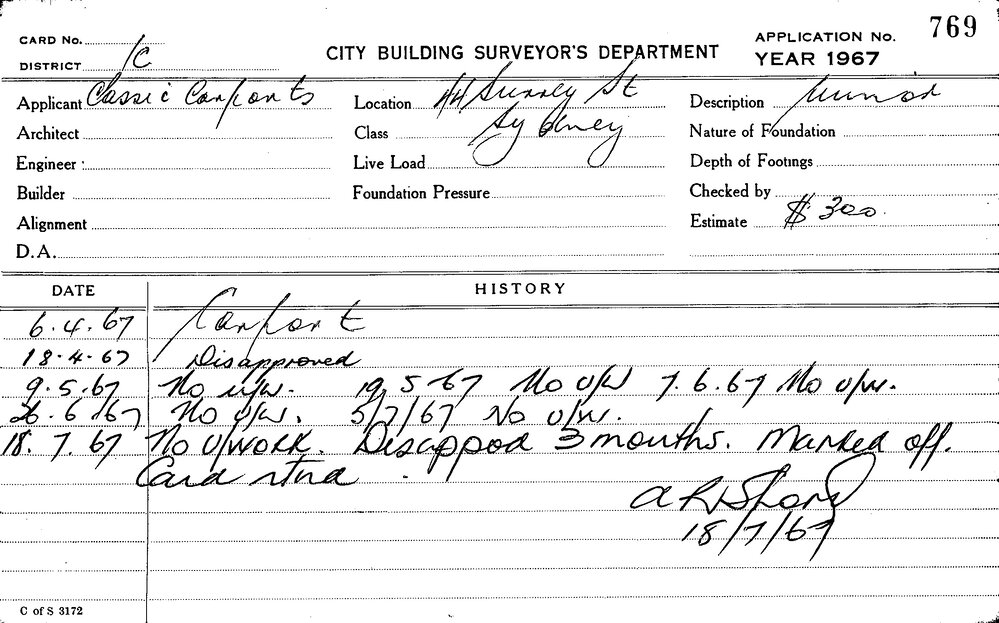 769
CARD No.
CITY BUILDING SURVEYOR'S DEPARTMENT
APPLICATION No.
DISTRICT 1C
YEAR 1967
Applicant Classic Carports
Location 44 Surrey St
Description Minor
Architect
Class Sydney
Nature of Foundation
Engineer :
Live Load
Depth of Footings
Builder
Foundation Pressure
Checked by
Alignment
Estimate $ 300.
D.A.
DATE HISTORY
6.4.67 Carport
18.4.67 Disapproved
9.5.67 No u/w. 19.5.67 No u/w 7.6.67 No u/w.
26.6.67 No u/w. 5/7/67 No u/w.
18.7.67 No u/work. Disappod 3 months. Marked off.
Card rtnd.
18/7/67
C of S 3172